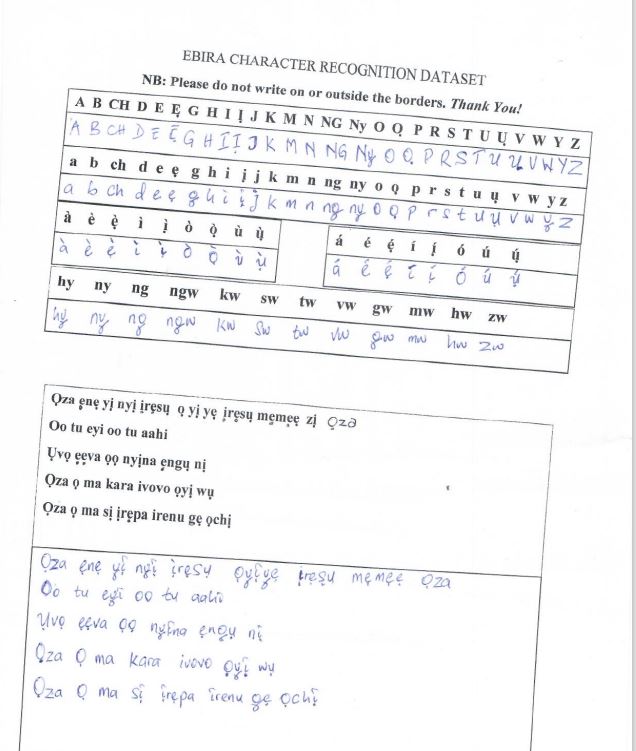 EBIRA CHARACTER RECOGNITION DATASET
NB: Please do not write on or outside the borders. Thank You!
A B CH D E Ẹ G H I Ị J K M N NG Ny O Ọ P R S T U Ụ V W Y Z
A B CH D E Ẹ G H I Ị J K M N NG Ny O Ọ P R S T U Ụ V W Y Z
a b ch d e ẹ g h i ị j k m n ng ny o ọ p r s t u ụ v w y z
a b ch d e ẹ g h i ị j k m n ng ny o ọ p r s t u ụ v w y z
à è ẹ̀ ì ị̀ ò ọ̀ ù ụ̀
à è ẹ̀ ì ị̀ ò ọ̀ ù ụ̀
á é ẹ́ í ị́ ó ú ụ́
á é ẹ́ í ị́ ó ú ụ́
hy ny ng ngw kw sw tw vw gw mw hw zw
hy ny ng ngw kw sw tw vw gw mw hw zw
Ọza ẹnẹ yị nyị ịrẹsụ ọ yị yẹ ịrẹsụ mẹmẹẹ zị ọza
Oo tu eyi oo tu aahi
Ụvọ ẹẹva ọọ nyịna ẹngụ nị
Ọza ọ ma kara ivovo ọyị wụ
Ọza ọ ma sị ịrẹpa irenu gẹ ọchị
Ọza ẹnẹ yị nyị ịrẹsụ ọyịyẹ ịrẹsụ mẹmẹẹ ọza
Oo tu eyi oo tu aahi
Ụvọ ẹẹva ọọ nyịna ẹngụ nị
Ọza Ọ ma kara ivovo ọyị wụ
Ọza Ọ ma sị ịrẹpa irenu gẹ ọchị